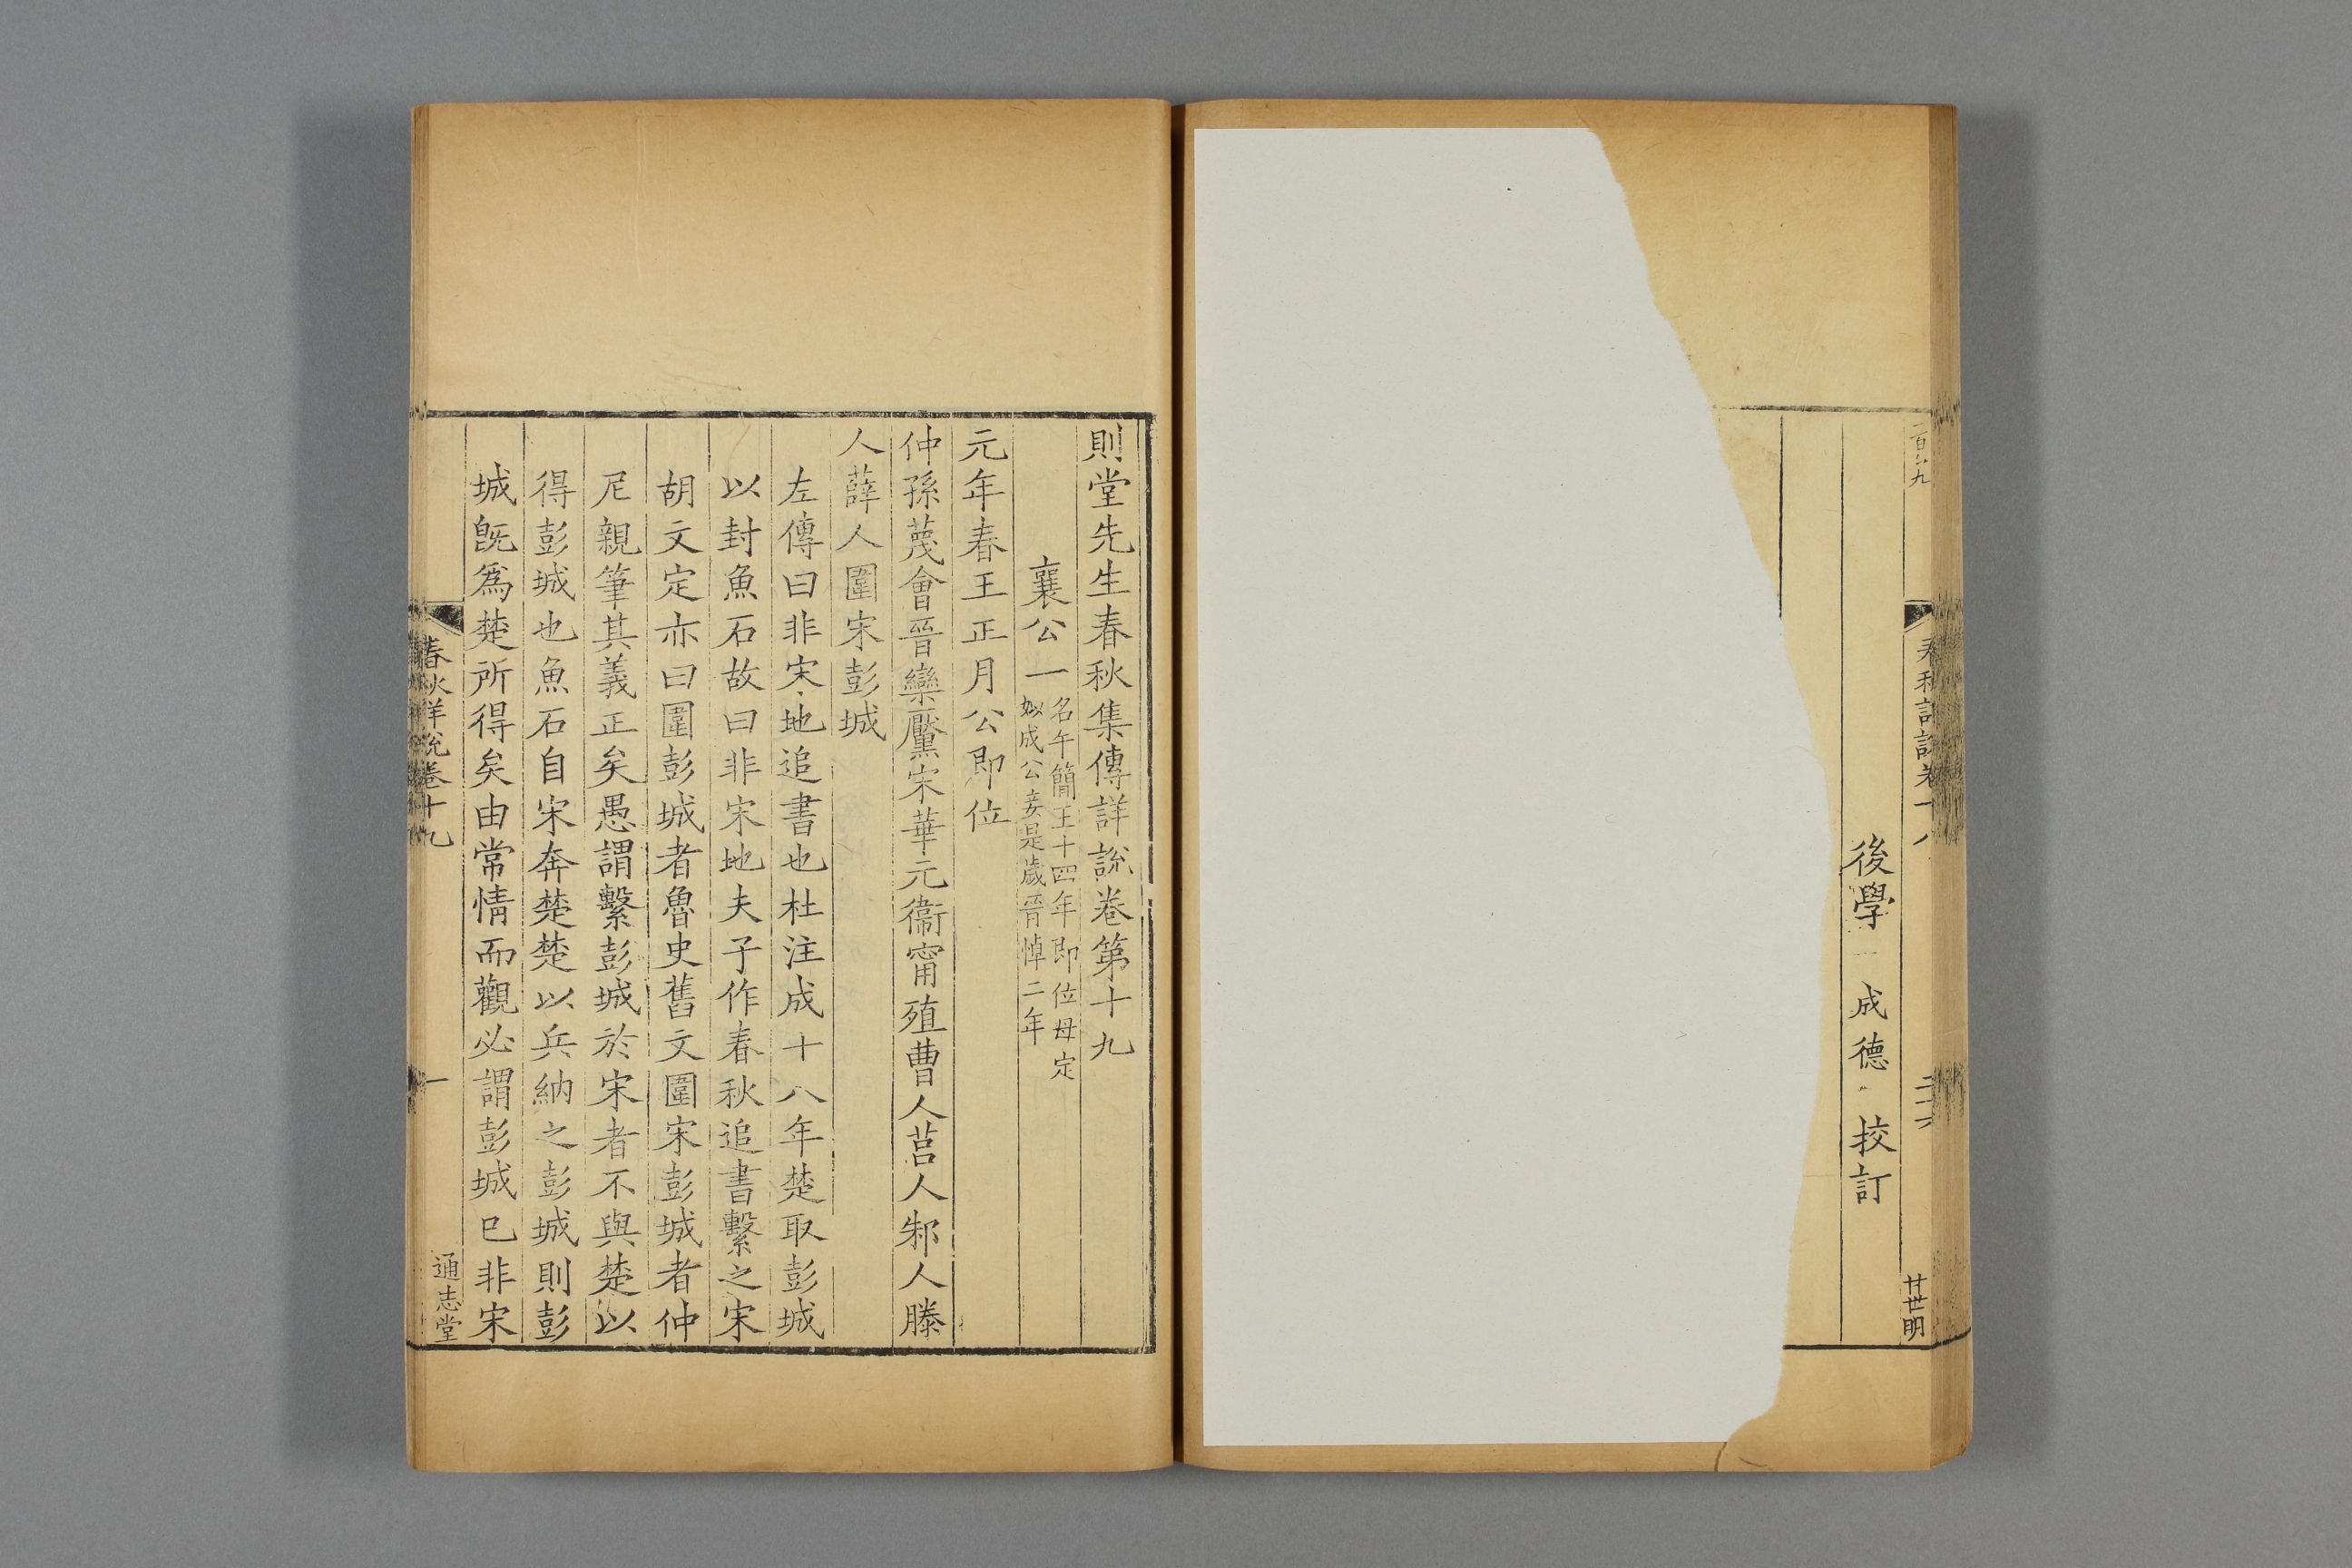 後學 成德 挍訂
則堂先生春秋集傳詳說卷第十九
襄公一
名午簡王十四年即位母定
姒成公妾是歲晉悼二年
元年春王正月公即位
仲孫蔑會晉欒黶宋華元衞甯殖曹人莒人邾人滕
人薛人圍宋彭城
左傳曰非宋地追書也杜注成十八年楚取彭城
以封魚石故曰非宋地夫子作春秋追書繫之宋
胡文定亦曰圍彭城者魯史舊文圍宋彭城者仲
尼親筆其義正矣愚謂繫彭城於宋者不與楚以
得彭城也魚石自宋奔楚楚以兵納之彭城則彭
城旣爲楚所得矣由常情而觀必謂彭城巳非宋
春秋詳說卷十九
一
通志堂